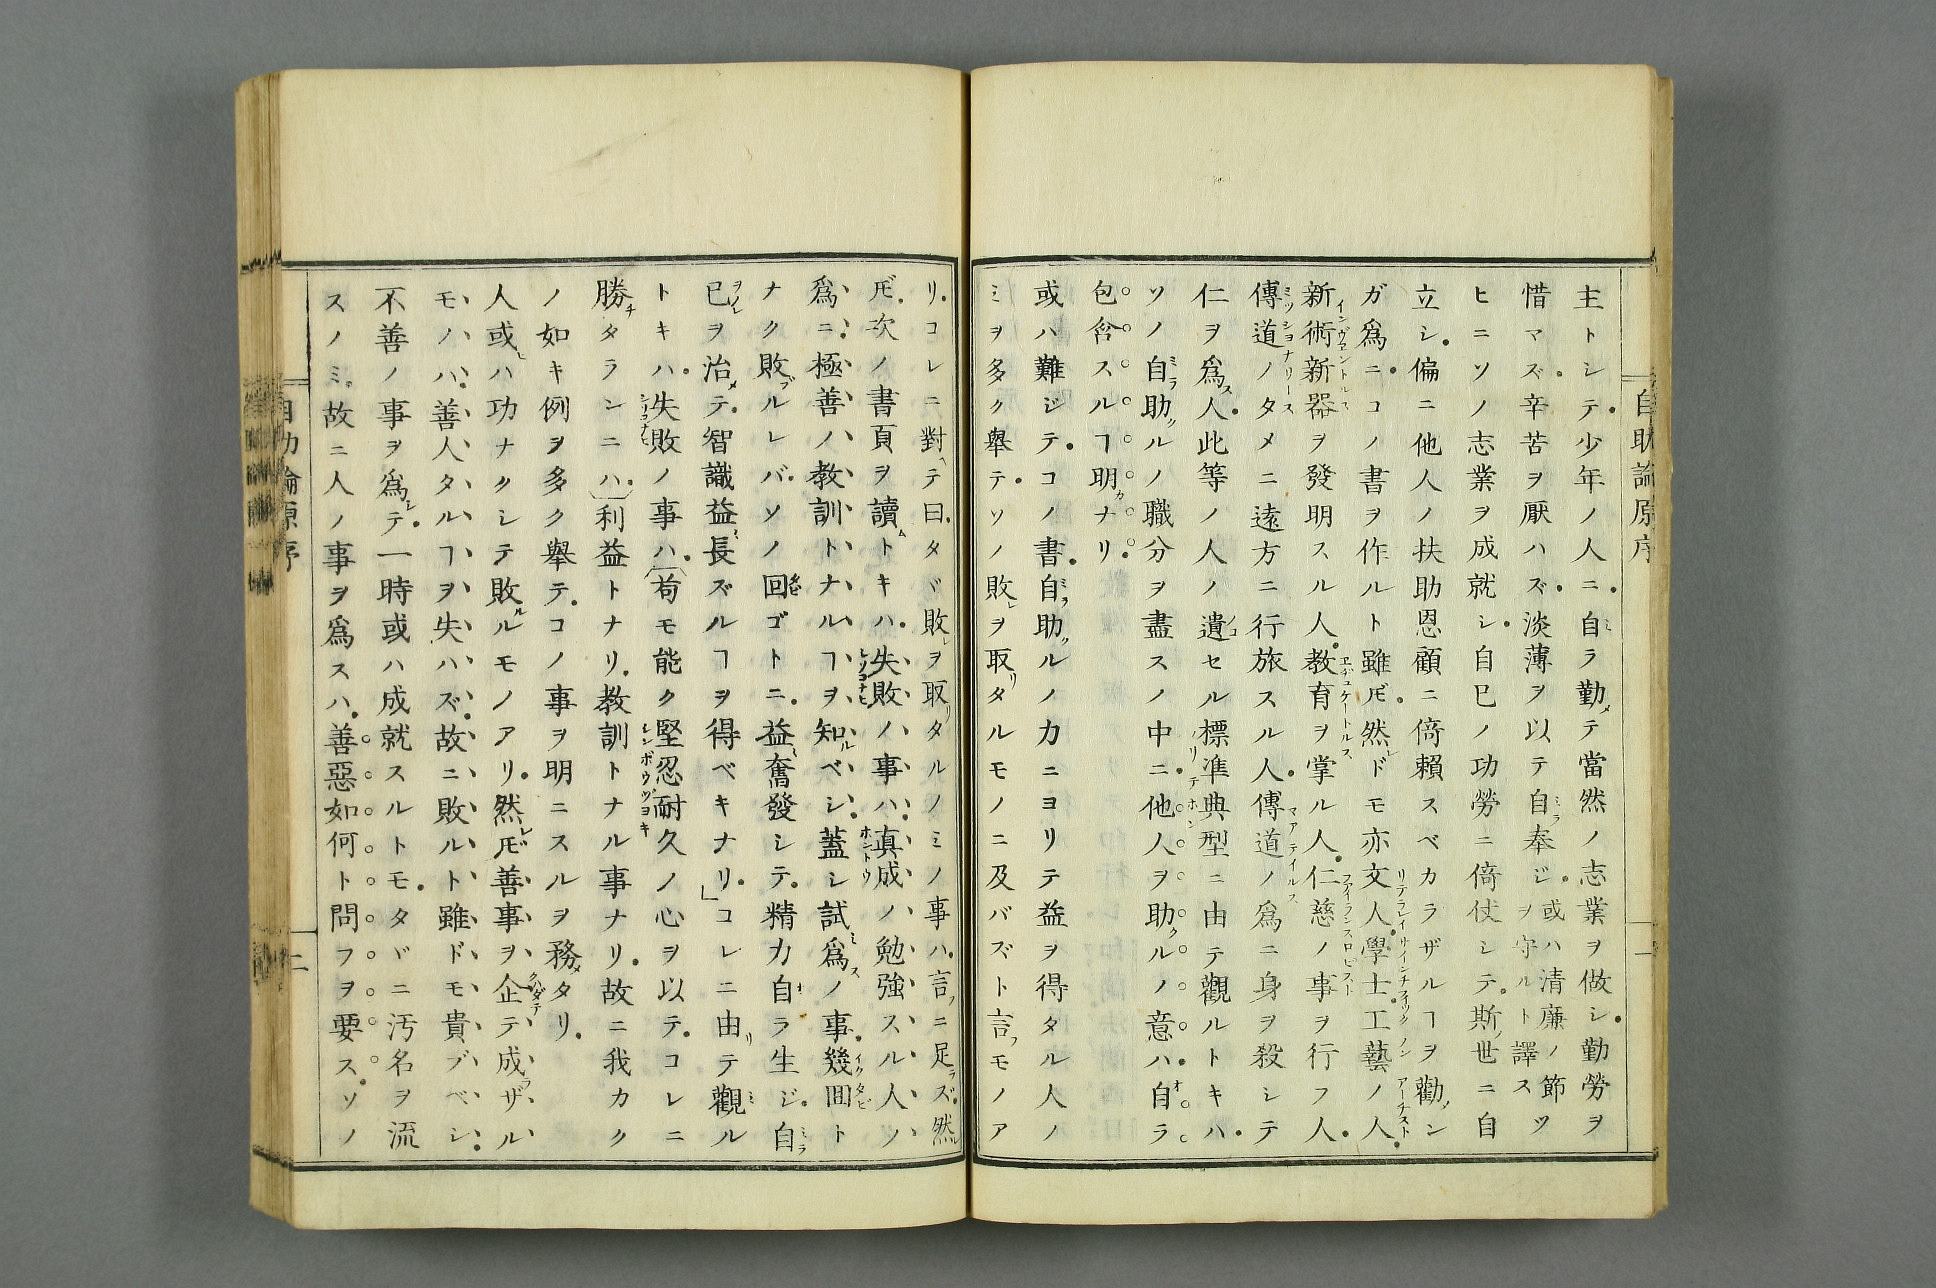 自助論原序
主トシテ少年ノ人ニ自ラ勤メテ當然ノ志業ヲ做シ勤勞ヲ
惜マズ辛苦ヲ厭ハズ淡薄ヲ以テ自奉ジ或ハ清廉ノ節ヲ守ルト譯スツ
ヒニソノ志業ヲ成就シ自己ノ功勞ニ倚仗シテ斯世ニ自
立シ偏ニ他人ノ扶助恩顧ニ倚賴スベカラザルヿヲ勸メン
ガ爲ニコノ書ヲ作ルト雖𪜈然レドモ亦文人學士工藝ノ人
新術新器ヲ發明スル人教育ヲ掌ル人仁慈ノ事ヲ行フ人
傳道ノタメニ遠方ニ行旅スル人傳道ノ爲ニ身ヲ殺シテ
仁ヲ爲ス人此等ノ人ノ遺セル標準典型ニ由テ觀ルトキハ
ソノ自助クルノ職分ヲ盡スノ中ニ他人ヲ助クルノ意ハ自ラ
包含スルヿ明カナリ
或ハ難ジテコノ書自ラ助クルノ力ニヨリテ益ヲ得タル人ノ
ミヲ多ク舉テソノ敗レヲ取リタルモノニ及バズト言フモノア
リコレニ對ヘテ曰タヾ敗レヲ取リタルノミノ事ハ言フニ足ラズ然レ
𪜈次ノ書頁ヲ讀ムトキハ失敗ノ事ハ真成ノ勉強スル人ノ
爲ニ極善ノ教訓トナルヿヲ知ルベシ蓋シ試ミ爲スノ事幾囘ト
ナク敗ブルレバソノ回ゴトニ益奮發シテ精力自ラ生ジ自ラ
己ヲ治メテ智識益長ズルヿヲ得ベキナリ」コレニ由リテ觀ミル
トキハ失敗ノ事ハ(苟モ能ク堅忍耐久ノ心ヲ以テコレニ
勝チタランニハ)利益トナリ教訓トナル事ナリ故ニ我カク
ノ如キ例ヲ多ク舉テコノ事ヲ明ニスルヲ務メタリ
人或ヒハ功ナクシテ敗ルルモノアリ然レ𪜈善事ヲ企テ成ラザル
モノハ善人タルヿヲ失ハズ故ニ敗ルト雖ドモ貴ブベシ
不善ノ事ヲ爲シテ一時或ハ成就スルトモタヾニ汚名ヲ流
スノミ故ニ人ノ事ヲ爲スハ善惡如何ト問フヲ要スソノ
自助論原序
二